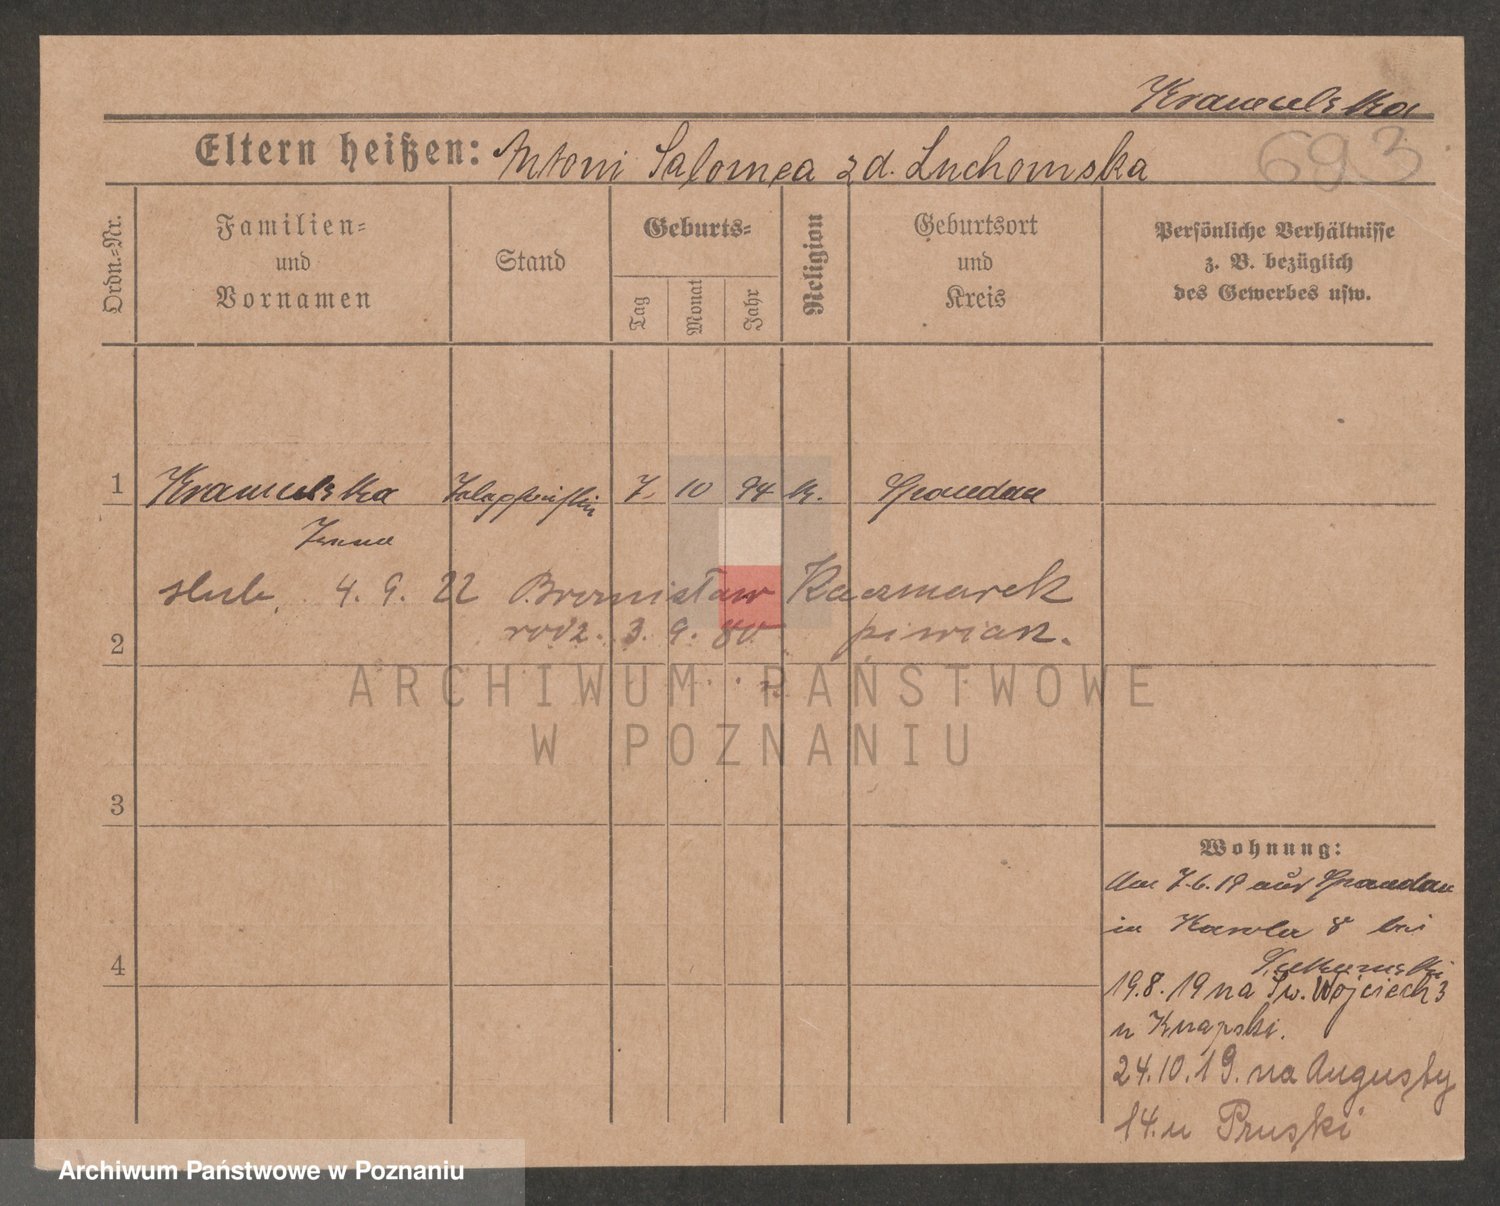 Eltern heißen: Antoni Salomea zd. Luchomska
693
Ordn.-Nr.
Familien- und Vornamen
Stand
Geburts-
Tag
Monat
Jahr
Religion
Geburtsort und Kreis
Persönliche Verhältnisse
z. B. bezüglich
des Gewerbes usw.
1 7. 10 94 k. Spandau
Irena
ślub. 4. 9. 22 Bronisław Kaczmarek
rodz. 3. 9. 80
2
ARCHIWUM PAŃSTWOWE
W POZNANIU
3
4
Wohnung:
Am 7.6.19 aus Spandau
in 8 bei
19.8.19 na Św. Wojciech 3
u Knapski.
24.10.19. na Augusty
14. u Pruski
Archiwum Państwowe w Poznaniu